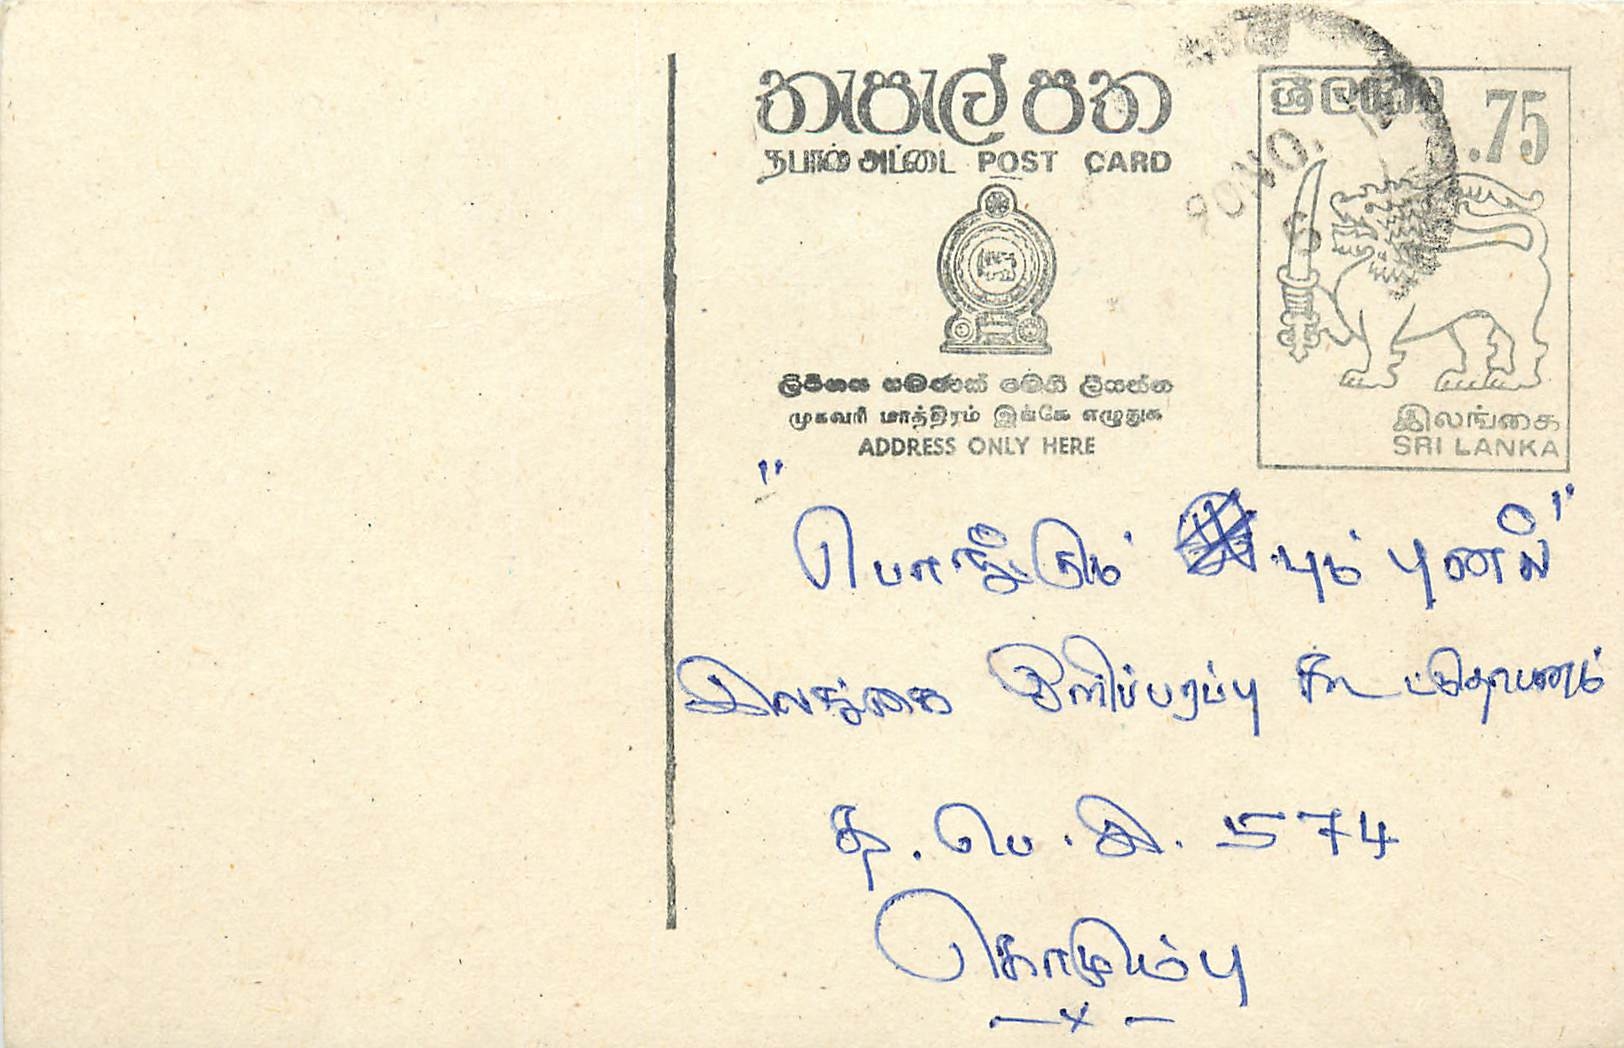 තැපැල් පත
தபால் அட்டை POST CARD
ශ්‍රී ලංකා .75
ලිපිනය පමණක් මෙහි ලියන්න
முகவரி மாத்திரம் இங்கே எழுதுக
ADDRESS ONLY HERE
இலங்கை
SRI LANKA
"பொங்கும் யும் புனல்"
இலங்கை ஒளிபரப்பு கூட்டுதாபனம்
த. பெ. இ. 574
கொழும்பு